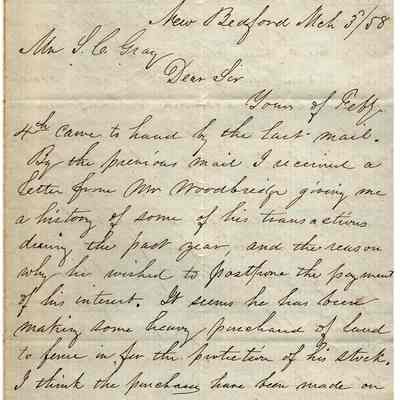 New Bedford Mch 5/58
Mr. S. C. Gray
Dear Sir
Yours of Feby
4th came to hand by the last mail.
By the previous mail I received a
letter from Mr Woodbridge giving me
a history of some of his transactions
during the past year, and the reason
why he wished to postpone the payment
of his interest. It seems he has been
making some heavy purchases of land
to fence in for the protection of his stock.
I think the purchases have been made on